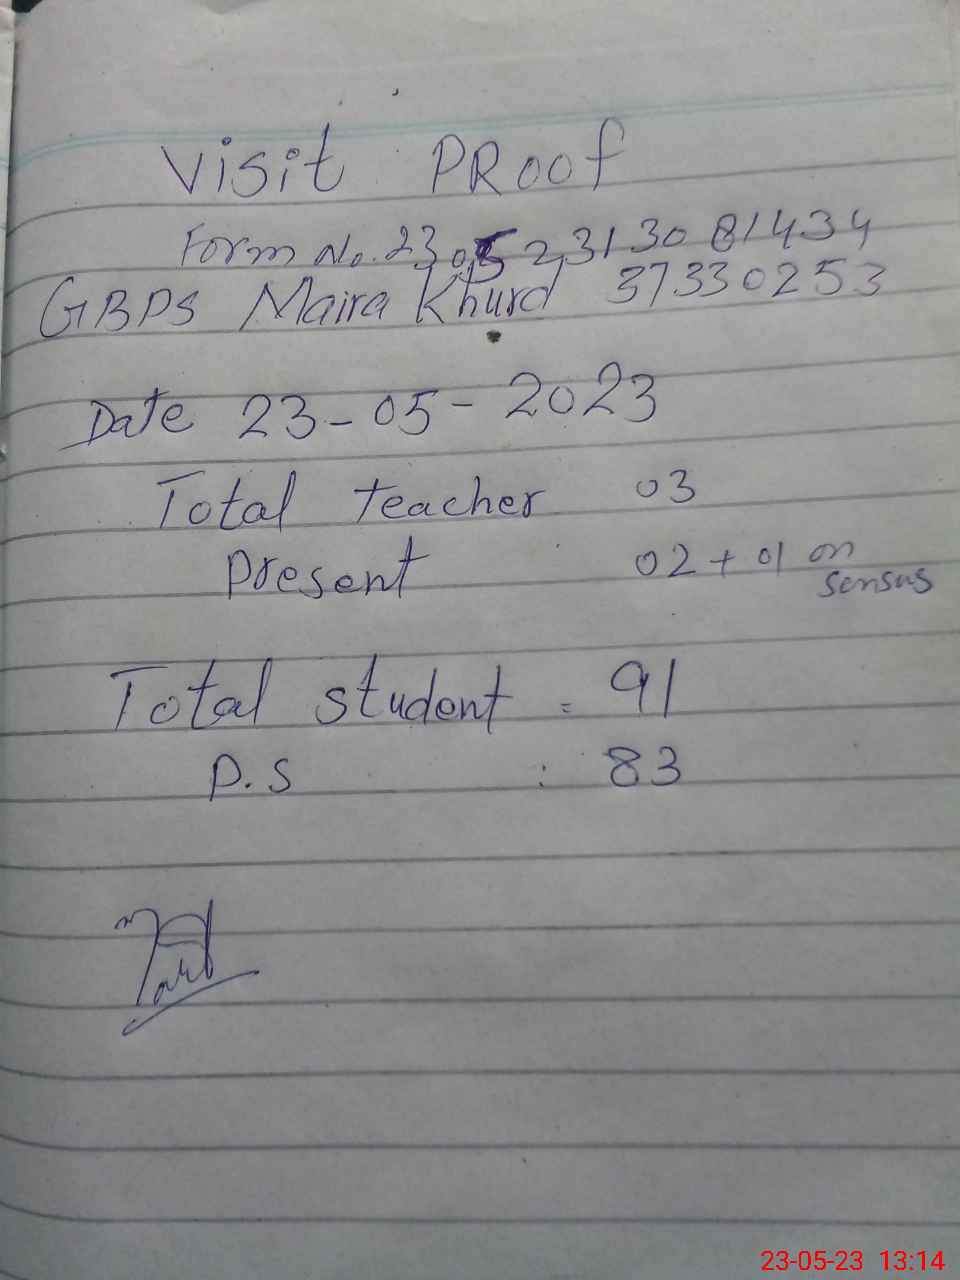 Visit PRoof
Form No. 23052313081434
GBPS Maira Khurd 37330253
Date 23-05-2023
Total teacher 03
present 02 + 01 on
sensus
Total student = 91
P.S : 83
23-05-23 13:14